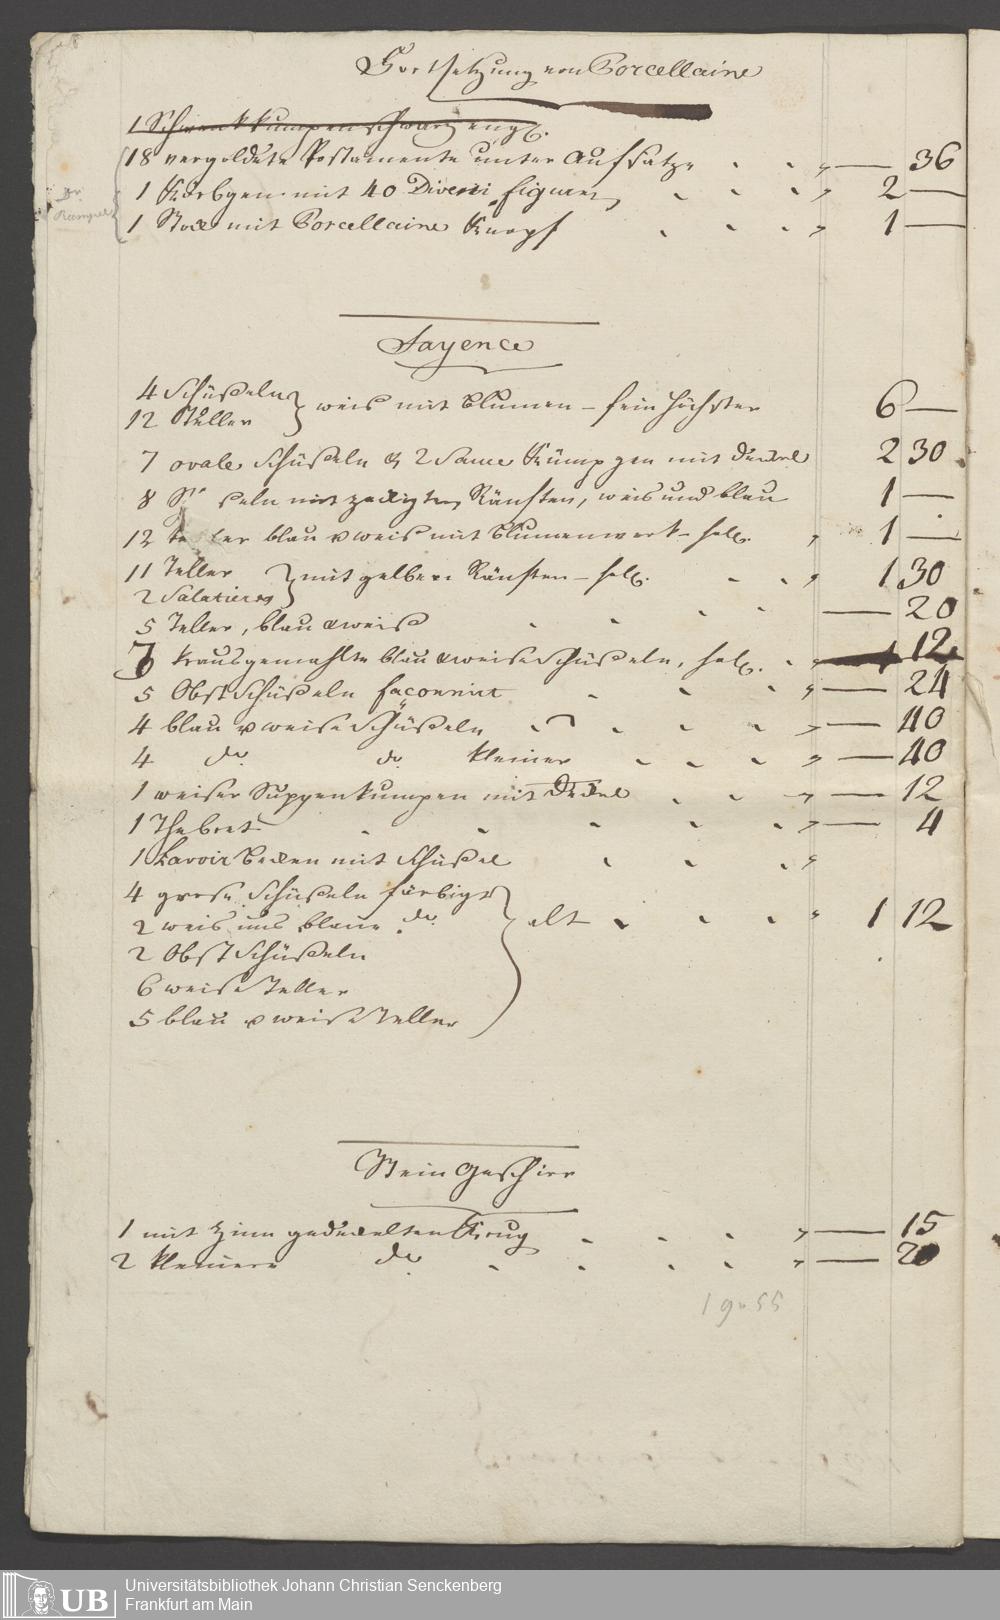 Fortsetzung von Porcellaine
1 Schwenkkumpen schwarz engl.
18 vergoldete Postamente unter Aufsatze " — 36
1 Körbgen mit 40 Diversi Figuren " 2 —
1 Stock mit Porcellaine Knopf " 1 —
Dr.
Fayence
4 Schüßeln
12 Teller } weis mit Blumen – fein Höchster 6 —
7 ovale Schüßeln & 2 Sauce Kümpgen mit Deckel 2 30
8 seln mit zackigten Ränften, weis und blau 1 —
12 Teller blau & weis mit Blumenwerk – holl. " 1 —
11 Teller
2 Salatieres } mit gelben Ränften – holl. " 1 30
5 Teller, blau & weiß — 20
7 krausgemahlte blau & weise Schüßeln, holl. " 12
5 Obst Schüßeln façonnirt " — 24
4 blau & weise Schüßeln " — 40
4 do. do. kleiner " — 40
1 weiser Suppenkumpen mit Deckel " — 12
1 Thebret " — 4
1 Lavoir Becken mit Schüßel "
4 grose Schüßeln färbigt
2 weis und blaue do.
2 Obst Schüßeln
6 weise Teller
5 blau & weise Teller } alt " 1 12
Stein Geschirr
1 mit Zinn gedeckelten Krug " — 15
2 kleinere do. " — 20
19 " 55
UB
Universitätsbibliothek Johann Christian Senckenberg
Frankfurt am Main